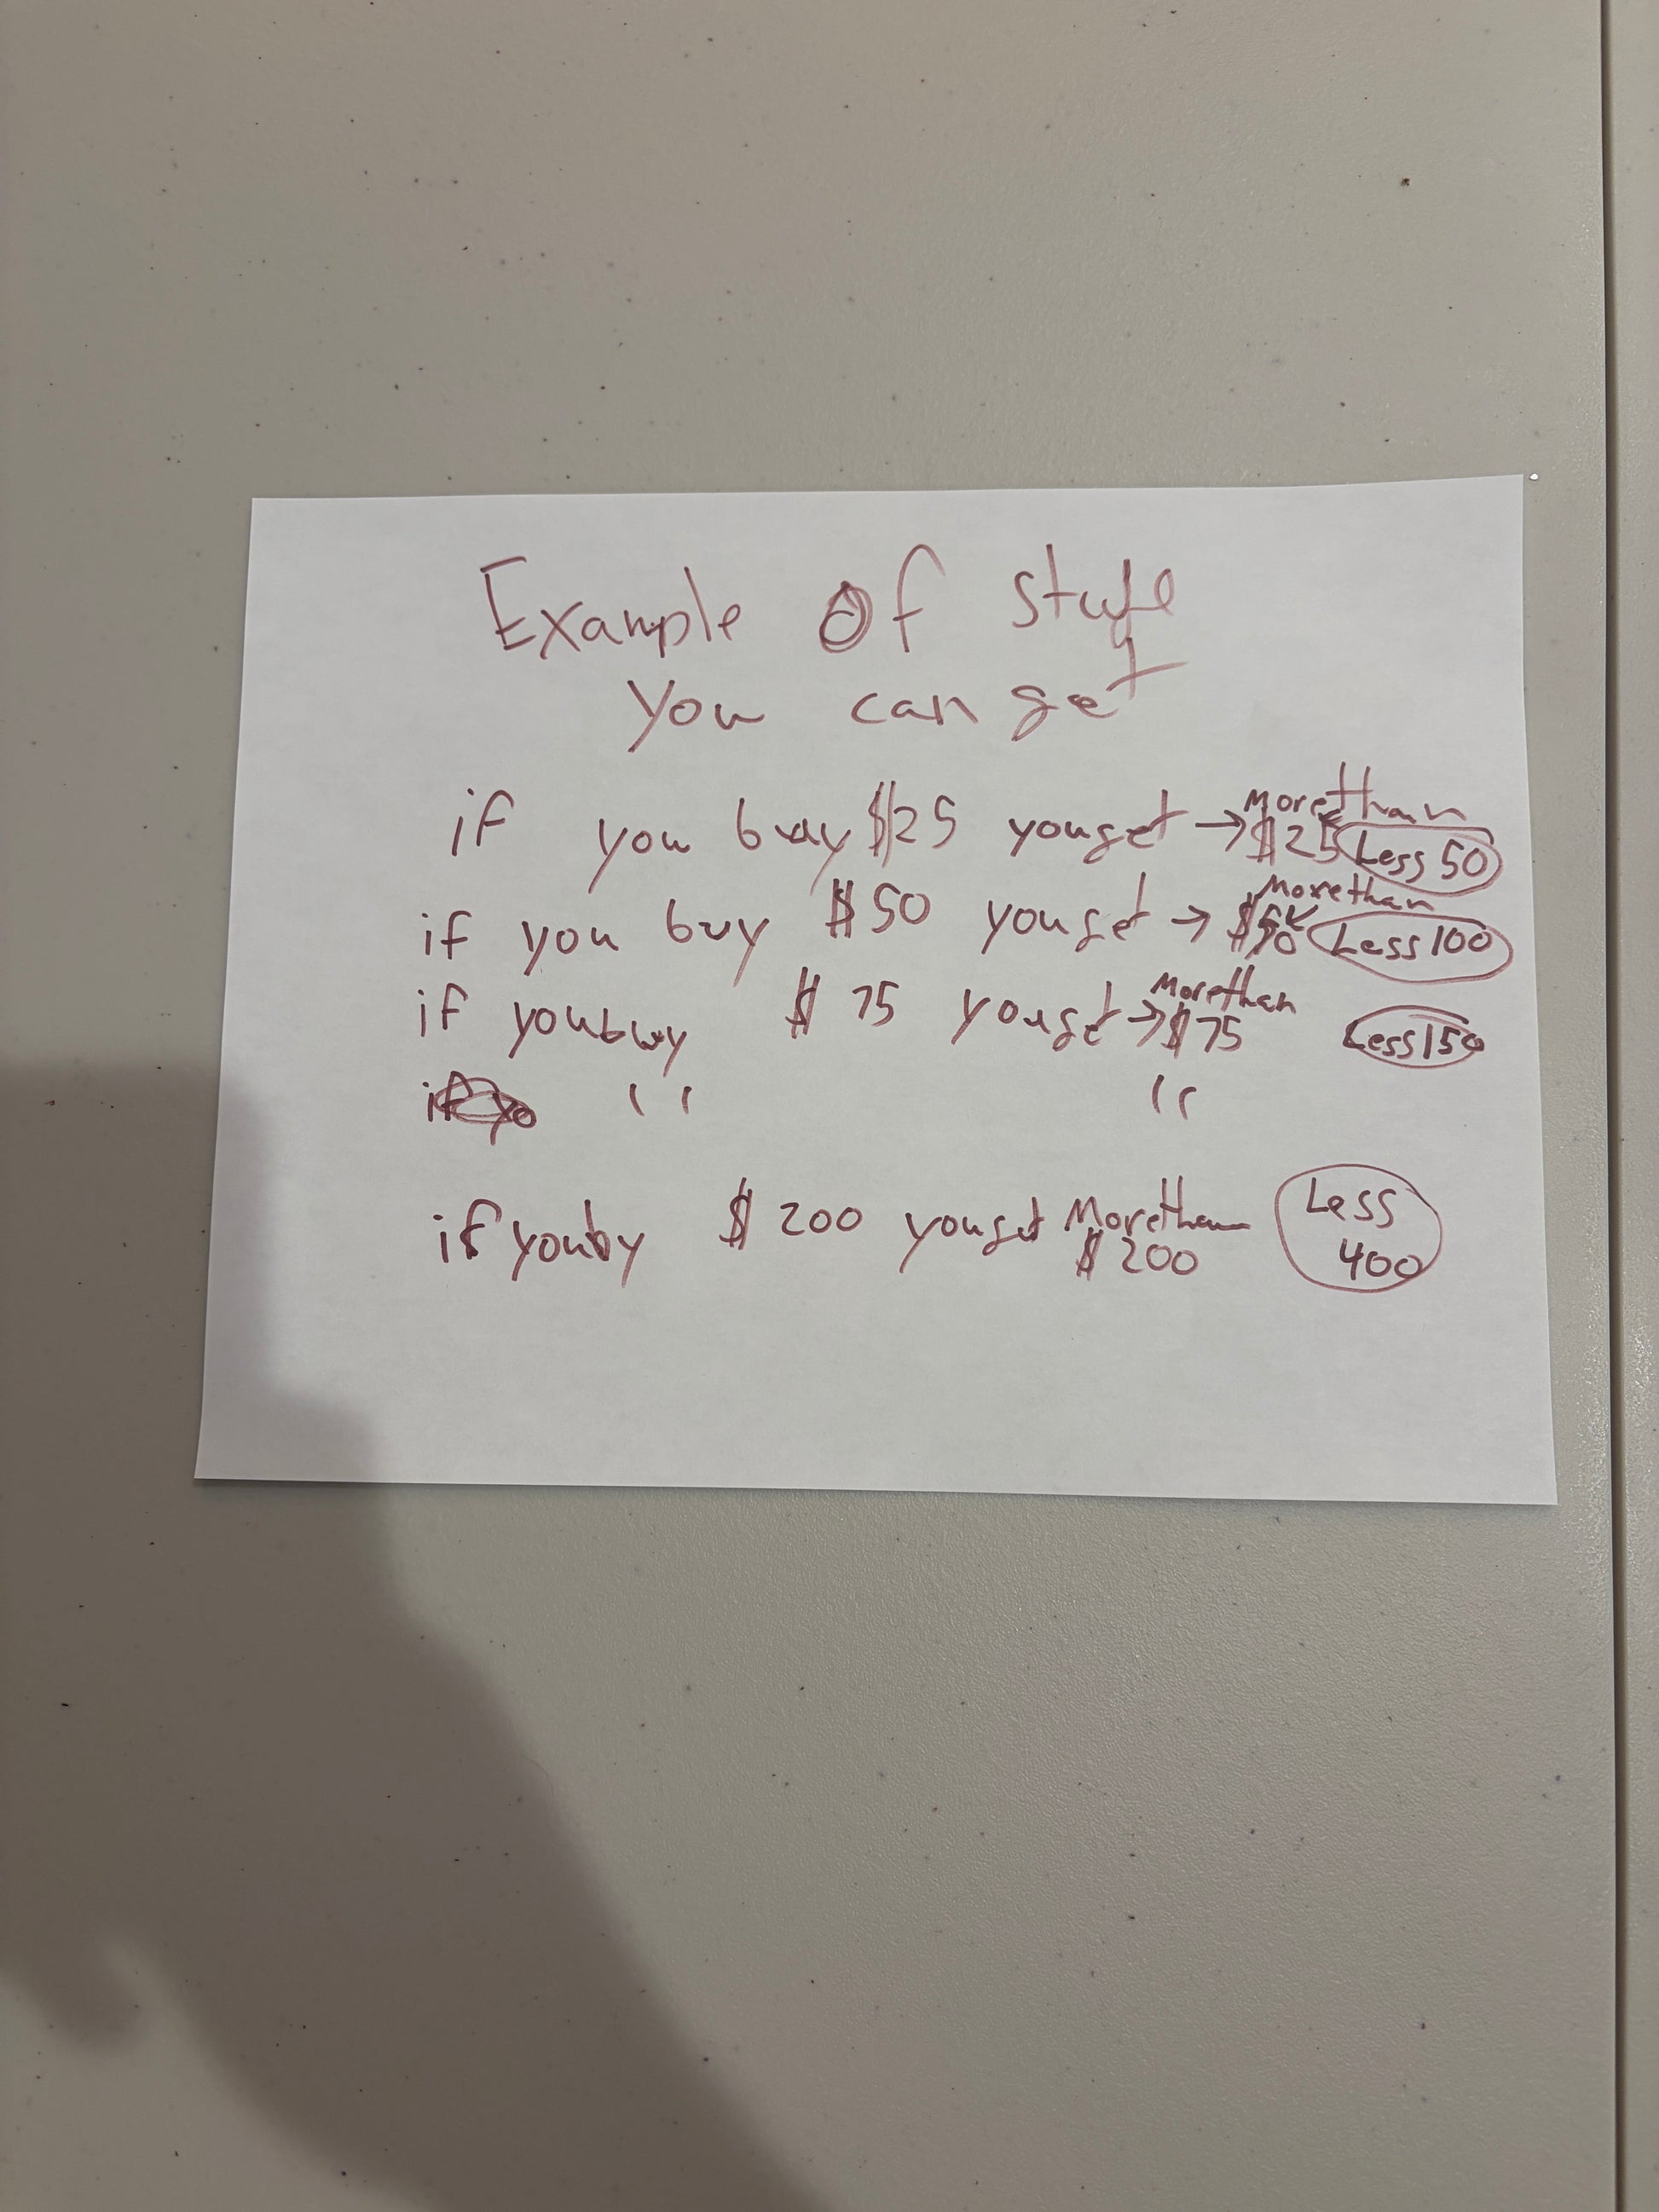 Example Of stuff
you can get
if you buy $25 you get → More than $25 Less 50
if you buy $50 you get → More than $50 Less 100
if you buy $75 you get → More than $75 Less 150
if yo " "
if you by $200 you get More than $200 Less 400